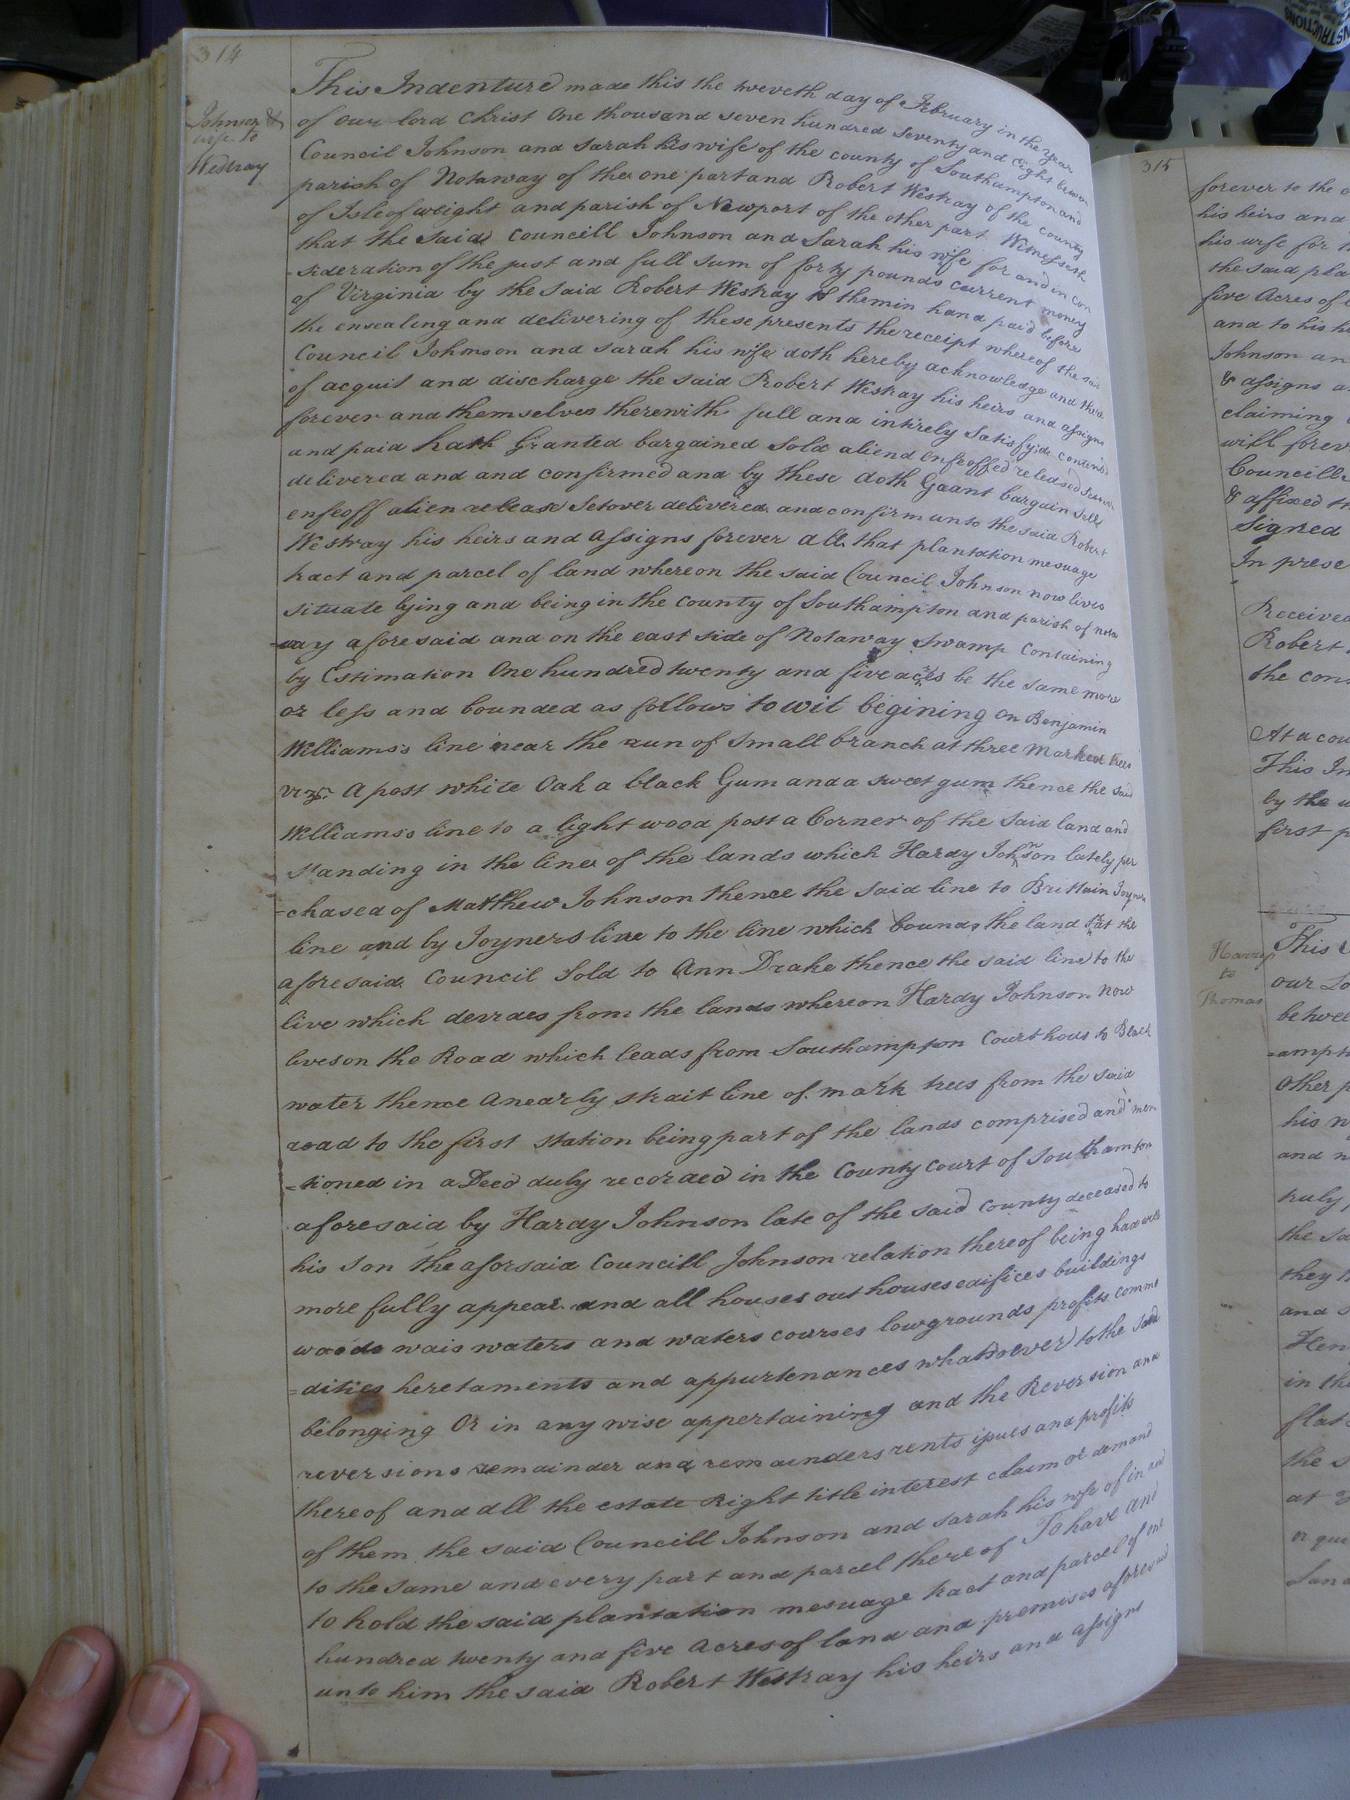 314
Johnson &
wife to
Westray
This Indenture made this the twveth day of February in the year
of our lord Christ One thousand seven hundred Seventy and Eight between
Council Johnson and Sarah his wife of the county of Southampton and
parish of Notaway of the one part and Robert Westray of the county
of Isle of weight and parish of Newport of the other part Witnesseth
that the said Councill Johnson and Sarah his wife for and in con
-sideration of the just and full sum of forty pounds current money
of Virginia by the said Robert Westray to them in hand paid before
the ensealing and delivering of these presents the receipt whereof the said
Council Johnson and Sarah his wife doth hereby acknowledge and there
of acquit and discharge the said Robert Westray his heirs and assigns
forever and themselves therewith full and intirely Satisfyide contented
and paid hath Granted bargained Sold aliend enfeoffed released
delivered and and confirmed and by these doth Gaant bargain Sell
enfeoff alien release Setover delivered and confirm unto the said Robert
Westray his heirs and Assigns forever all that plantation mesuage
tract and parcel of land whereon the said Council Johnson now lives
situate lying and being in the county of Southampton and parish of nota
-way aforesaid and on the east side of Notaway Swamp Containing
by Estimation One hundred twenty and five acres be the same more
or less and bounded as follows to wit begining on Benjamin
Williams's line near the run of Small branch at three Marked trees
vizt. A post white Oak a black Gum and a sweet gum thence the said
Williams's line to a light wood post a Corner of the Said land and
standing in the line of the lands which Hardy Johnson lately pur
=chased of Matthew Johnson thence the said line to Brittain Joyners
line and by Joyners line to the line which bounds the land that the
aforesaid Council Sold to Ann Drake thence the said line to the
live which devides from the lands whereon Hardy Johnson now
lives on the Road which leads from Southampton Court hous to Black
water thence a nearly strait line of mark trees from the said
road to the first station being part of the lands comprised and men
=tioned in a Deed duly recorded in the County Court of Southamton
aforesaid by Hardy Johnson late of the said County deceased to
his Son the aforsaid Councill Johnson relation thereof being had will
more fully appear and all houses out houses edifices buildings
woods wais waters and waters courses lowgrounds profits commo
=dities heretaments and appurtenances whatsoever to the said
belonging Or in any wise appertaining and the Reversion and
reversions remainder and remainders rents issues and profits
thereof and all the estate Right title interest claim or demand
of them the said Councill Johnson and Sarah his wife of in and
to the same and every part and parcel thereof To have and
to hold the said plantation mesuage tract and parcel of one
hundred twenty and five Acres of land and premises aforesaid
unto him the said Robert Westray his heirs and assigns
315
forever to the
his heirs and
his wife for
the said pla
five Acres of
and to his h
Johnson an
& assigns a
claiming
will forev
Councill
& affixed th
Signed
In prese
Received
Robert
the cons
At a cou
This In
by the w
first p
Harris
to
Thomas
This
our Lo
betwee
=ampt
Other p
his w
and n
truly
the sa
they h
and s
Hen
in the
flat
the s
at
or que
Land